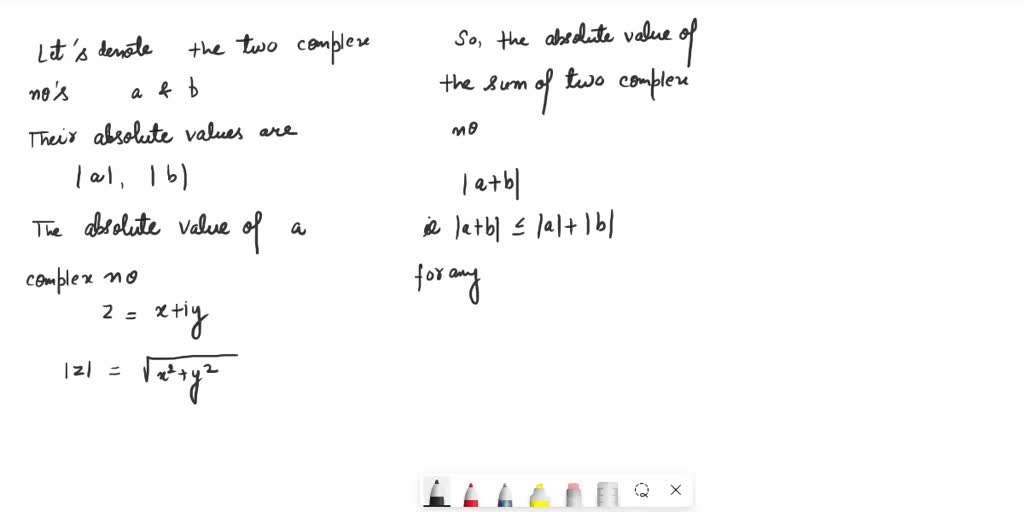 Let's denote the two complex
no's a & b
Their absolute values are
|a|, |b|
The absolute value of a
complex no
z = x+iy
|z| = √x²+y²
So, the absolute value of
the sum of two complex
no
|a+b|
is |a+b| ≤ |a|+|b|
for any